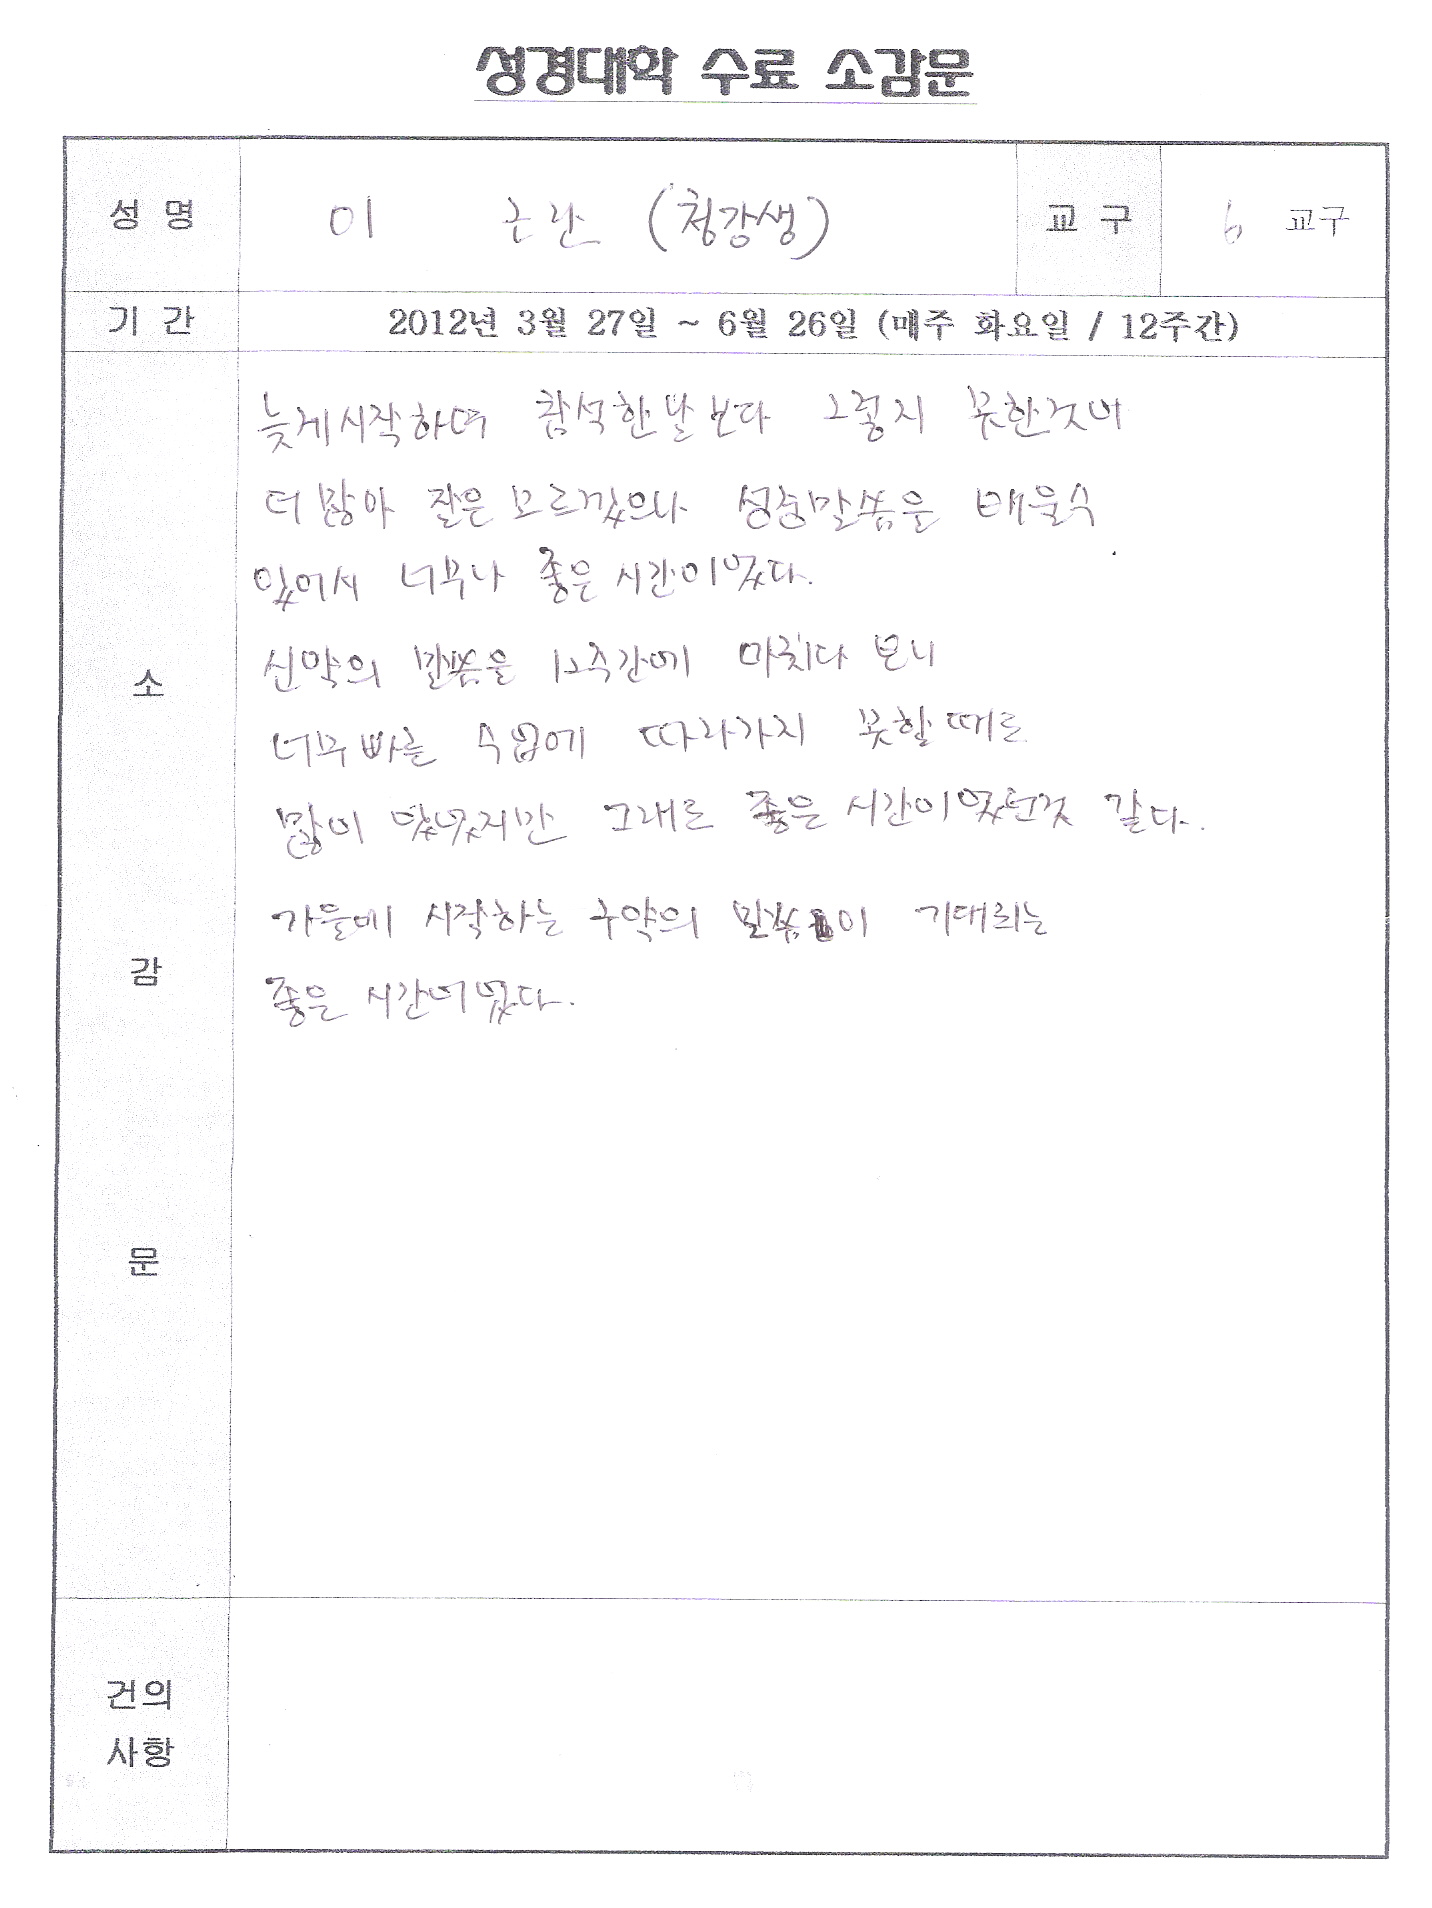 성경대학 수료 소감문
성 명 이 근란 (청강생) 교 구 6 교구
기 간 2012년 3월 27일 ~ 6월 26일 (매주 화요일 / 12주간)
늦게시작하며 참석한날보다 그렇지 못한것이
더많아 잘은모르겠으나 성경말씀을 배울수
있어서 너무나 좋은시간이었다.
신약의 말씀을 12주간에 마치다 보니
너무빠른 수업에 따라가지 못할때도
많이 있었지만 그래도 좋은 시간이었던것 같다.
가을에 시작하는 구약의 말씀이 기대되는
좋은 시간이었다.
소
감
문
건의
사항